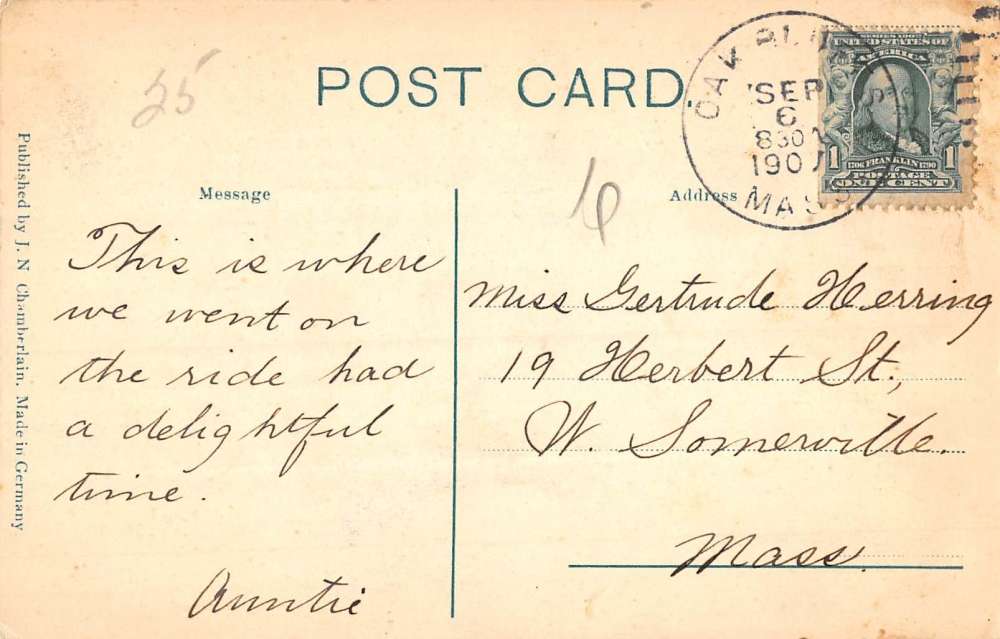 25
POST CARD.
OAK BLUFFS
SEP
6
830A
1907
MASS
SERIES 1902
UNITED STATES OF
AMERICA
1 1706 FRANKLIN 1790 1
POSTAGE
ONE CENT
Published by J. N Chamberlain. Made in Germany
Message
This is where
we went on
the ride had
a delightful
time.
Auntie
6
Address
Miss Gertrude Herring
19 Herbert St.,
W. Somerville.
Mass.